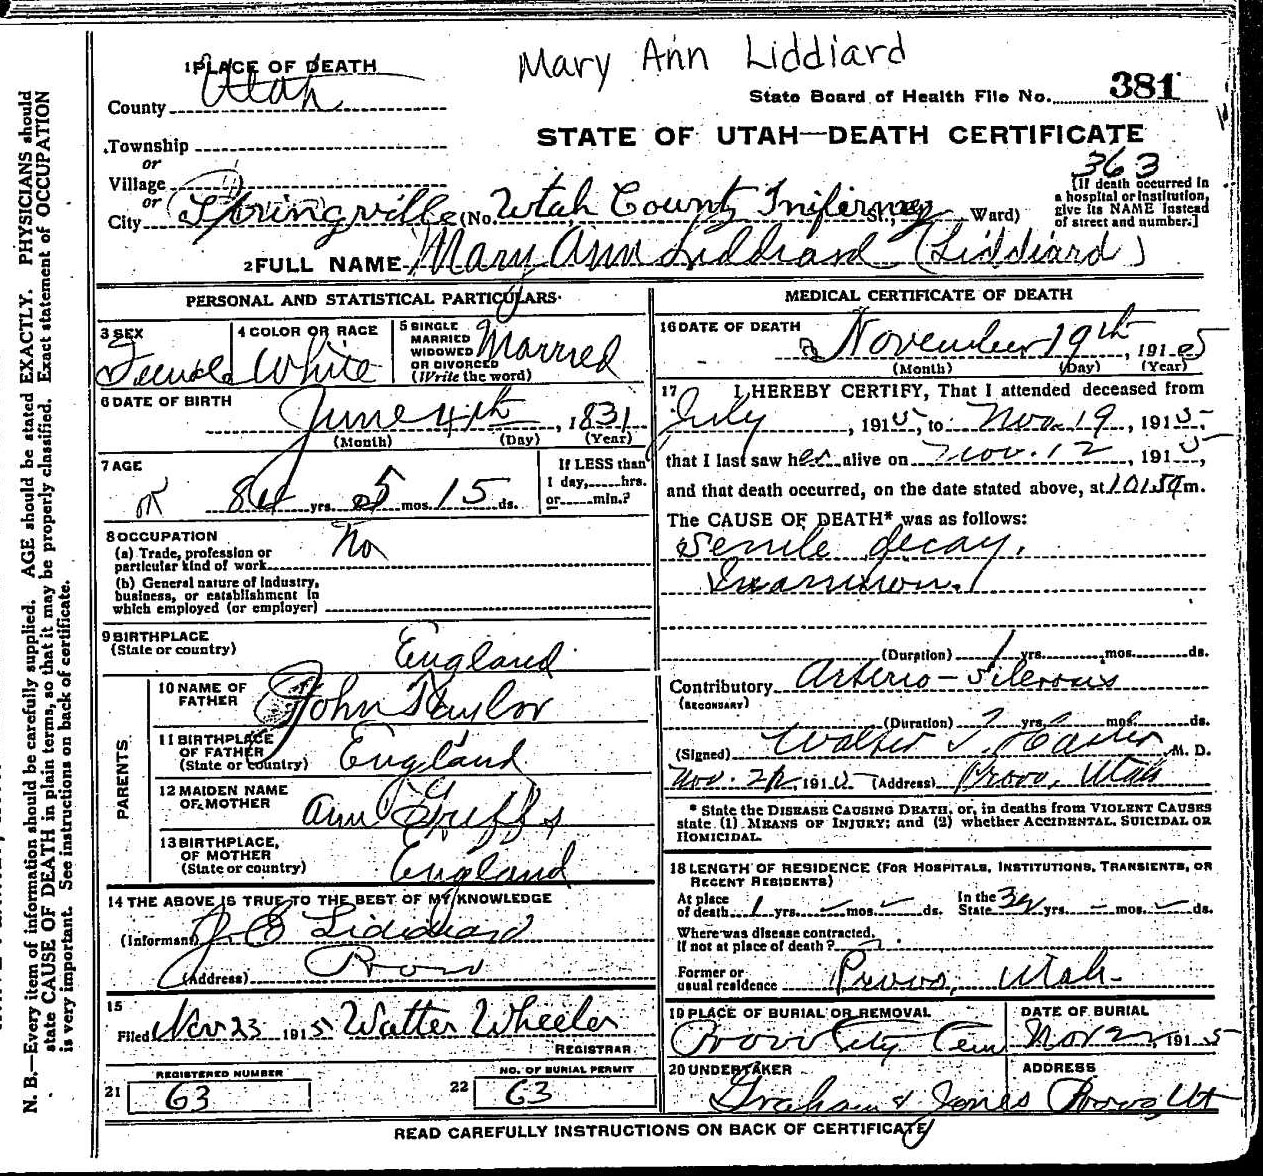 Mary Ann Liddiard
1 PLACE OF DEATH
County Utah
State Board of Health File No. 381
Township
or
Village
or
City Springville (No. Utah County Infirmry St.; Ward)
STATE OF UTAH—DEATH CERTIFICATE
363
[If death occurred in
a hospital or institution,
give its NAME instead
of street and number.]
2 FULL NAME Mary Ann Liddiard (Liddiard)
PERSONAL AND STATISTICAL PARTICULARS
3 SEX
Female
4 COLOR OR RACE
White
5 SINGLE
MARRIED
WIDOWED
OR DIVORCED
(Write the word)
Married
6 DATE OF BIRTH
June 4th, 1831
(Month) (Day) (Year)
7 AGE
84 yrs. 5 mos. 15 ds.
If LESS than
1 day, hrs.
or min.?
8 OCCUPATION
(a) Trade, profession or
particular kind of work
No
(b) General nature of Industry,
business, or establishment in
which employed (or employer)
9 BIRTHPLACE
(State or country)
England
PARENTS
10 NAME OF
FATHER
John Taylor
11 BIRTHPLACE
OF FATHER
(State or country)
England
12 MAIDEN NAME
OF MOTHER
Ann
13 BIRTHPLACE,
OF MOTHER
(State or country)
England
14 THE ABOVE IS TRUE TO THE BEST OF MY KNOWLEDGE
(Informant) Liddiard
(Address) Provo
15
Filed Nov 23 1915 Walter Wheeler
REGISTRAR
REGISTERED NUMBER
21 63
NO. OF BURIAL PERMIT
22 63
MEDICAL CERTIFICATE OF DEATH
16 DATE OF DEATH
November 19th, 1915
(Month) (Day) (Year)
17 I HEREBY CERTIFY, That I attended deceased from
July, 1915, to Nov. 19, 1915,
that I last saw her alive on Nov. 12, 1915,
and that death occurred, on the date stated above, at m.
The CAUSE OF DEATH* was as follows:
Senile decay.
Inanition.
(Duration) 1 yrs. mos. ds.
Contributory Arterio-Sclerosis
(SECONDARY)
(Duration) ? yrs. mos. ds.
(Signed) Walter T. Hasler M. D.
Nov. 1915 (Address) Provo, Utah
* State the DISEASE CAUSING DEATH, or, in deaths from VIOLENT CAUSES
state (1) MEANS OF INJURY; and (2) whether ACCIDENTAL, SUICIDAL OR
HOMICIDAL.
18 LENGTH OF RESIDENCE (FOR HOSPITALS, INSTITUTIONS, TRANSIENTS, OR
RECENT RESIDENTS)
At place
of death 1 yrs. – mos. – ds.
In the
State yrs. – mos. – ds.
Where was disease contracted,
If not at place of death? ?
Former or
usual residence Provo, Utah
19 PLACE OF BURIAL OR REMOVAL
Provo City Cem
DATE OF BURIAL
Nov 22, 1915
20 UNDERTAKER
Graham & Jones
ADDRESS
Provo Ut
READ CAREFULLY INSTRUCTIONS ON BACK OF CERTIFICATE
N. B.—Every item of information should be carefully supplied. AGE should be stated EXACTLY. PHYSICIANS should
state CAUSE OF DEATH in plain terms, so that it may be properly classified. Exact statement of OCCUPATION
is very important. See instructions on back of certificate.